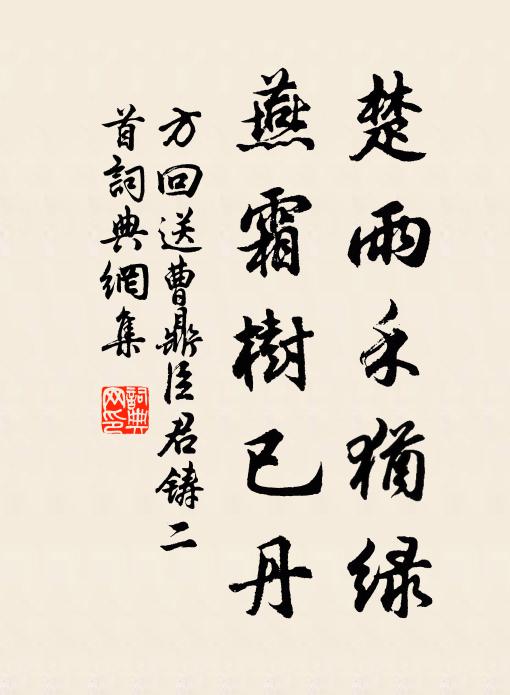 楚雨禾猶绿
燕霜樹已丹
方回送曹鼎臣君鑄二
首詞典網集
詞典网印